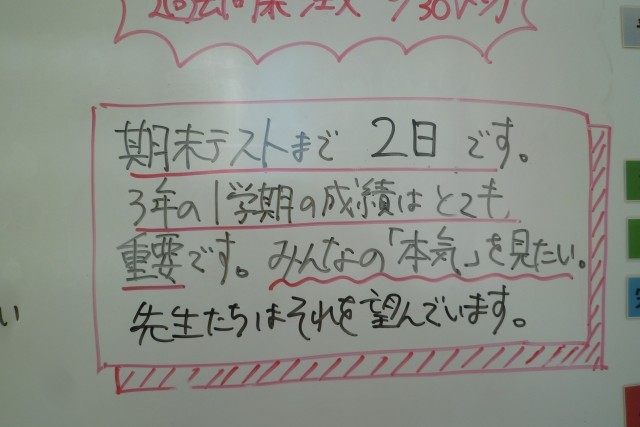 期末テストまで 2日 です。
3年の1学期の成績はとても
重要です。みんなの「本気」を見たい。
先生たちはそれを望んでいます。
い